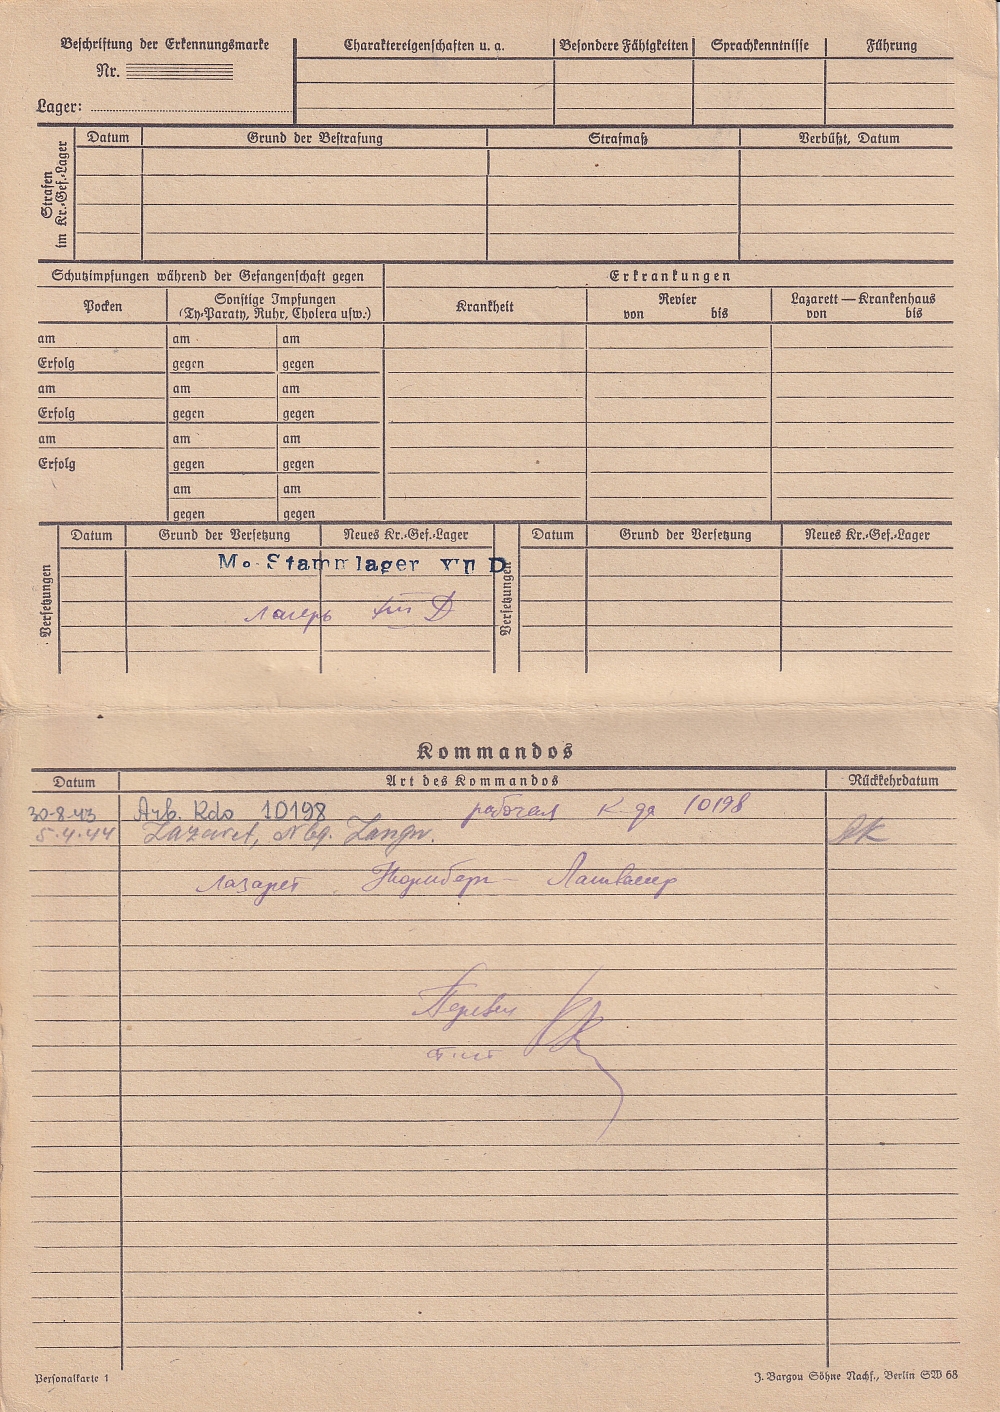 Beschriftung der Erkennungsmarke
Nr.
Lager:
Charaktereigenschaften u. a.
Besondere Fähigkeiten
Sprachkenntnisse
Führung
Strafen im Kr.-Gef.-Lager
Datum
Grund der Bestrafung
Strafmaß
Verbüßt, Datum
Schutzimpfungen während der Gefangenschaft gegen
Erkrankungen
Pocken
Sonstige Impfungen
(Ty-Paraty, Ruhr, Cholera usw.)
Krankheit
Revier
von bis
Lazarett — Krankenhaus
von bis
am am am
Erfolg gegen gegen
am am am
Erfolg gegen gegen
am am am
Erfolg gegen gegen
am am
gegen gegen
Versetzungen
Datum
Grund der Versetzung
Neues Kr.-Gef.-Lager
Versetzungen
Datum
Grund der Versetzung
Neues Kr.-Gef.-Lager
M.-Stammlager VII D
лагерь XIII D
Kommandos
Datum
Art des Kommandos
Rückkehrdatum
30-8-43 Arb. Kdo 10198 рабочая к-да 10198
5.4.44 Lazaret, Nbg. Langw.
Лазарет Нюрнберг-Лангвассер
Перевел
Personalkarte 1
J. Bargou Söhne Nachf., Berlin SW 68